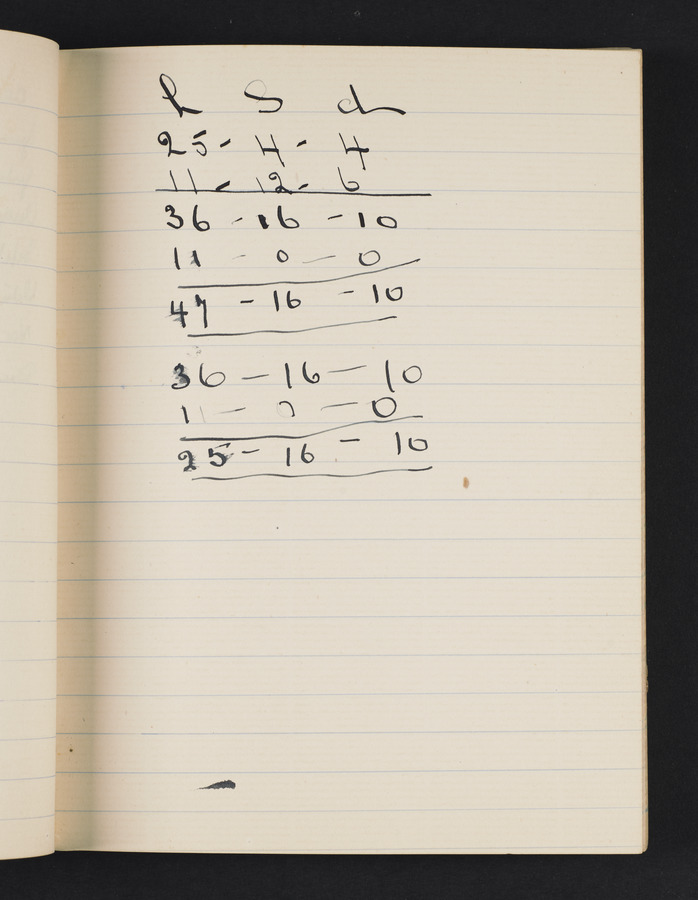 L S d
25 - 4 - 4
11 - 12 - 6
36 - 16 - 10
11 - 0 - 0
47 - 16 - 10
36 - 16 - 10
11 - 0 - 0
25 - 16 - 10